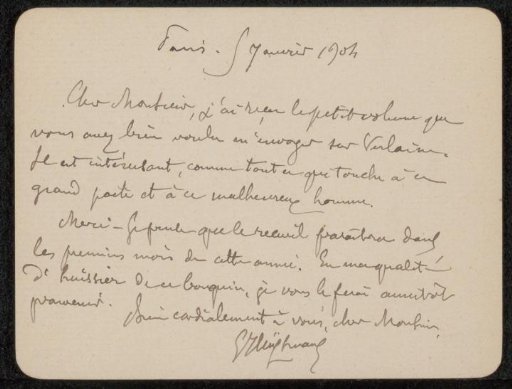 Paris. 5 Janvier 1904
Cher Monsieur, j'ai reçu le petit volume que
vous avez bien voulu m'envoyer sur Verlaine.
Il est intéressant, comme tout ce qui touche à ce
grand poète et à ce malheureux homme.
Merci - Je pense que le recueil paraîtra dans
les premiers mois de cette année. En ma qualité
d'huissier de ce bouquin, je vous le ferai aussitôt
parvenir.
Bien cordialement à vous, cher Monsieur,
G J Huysmans